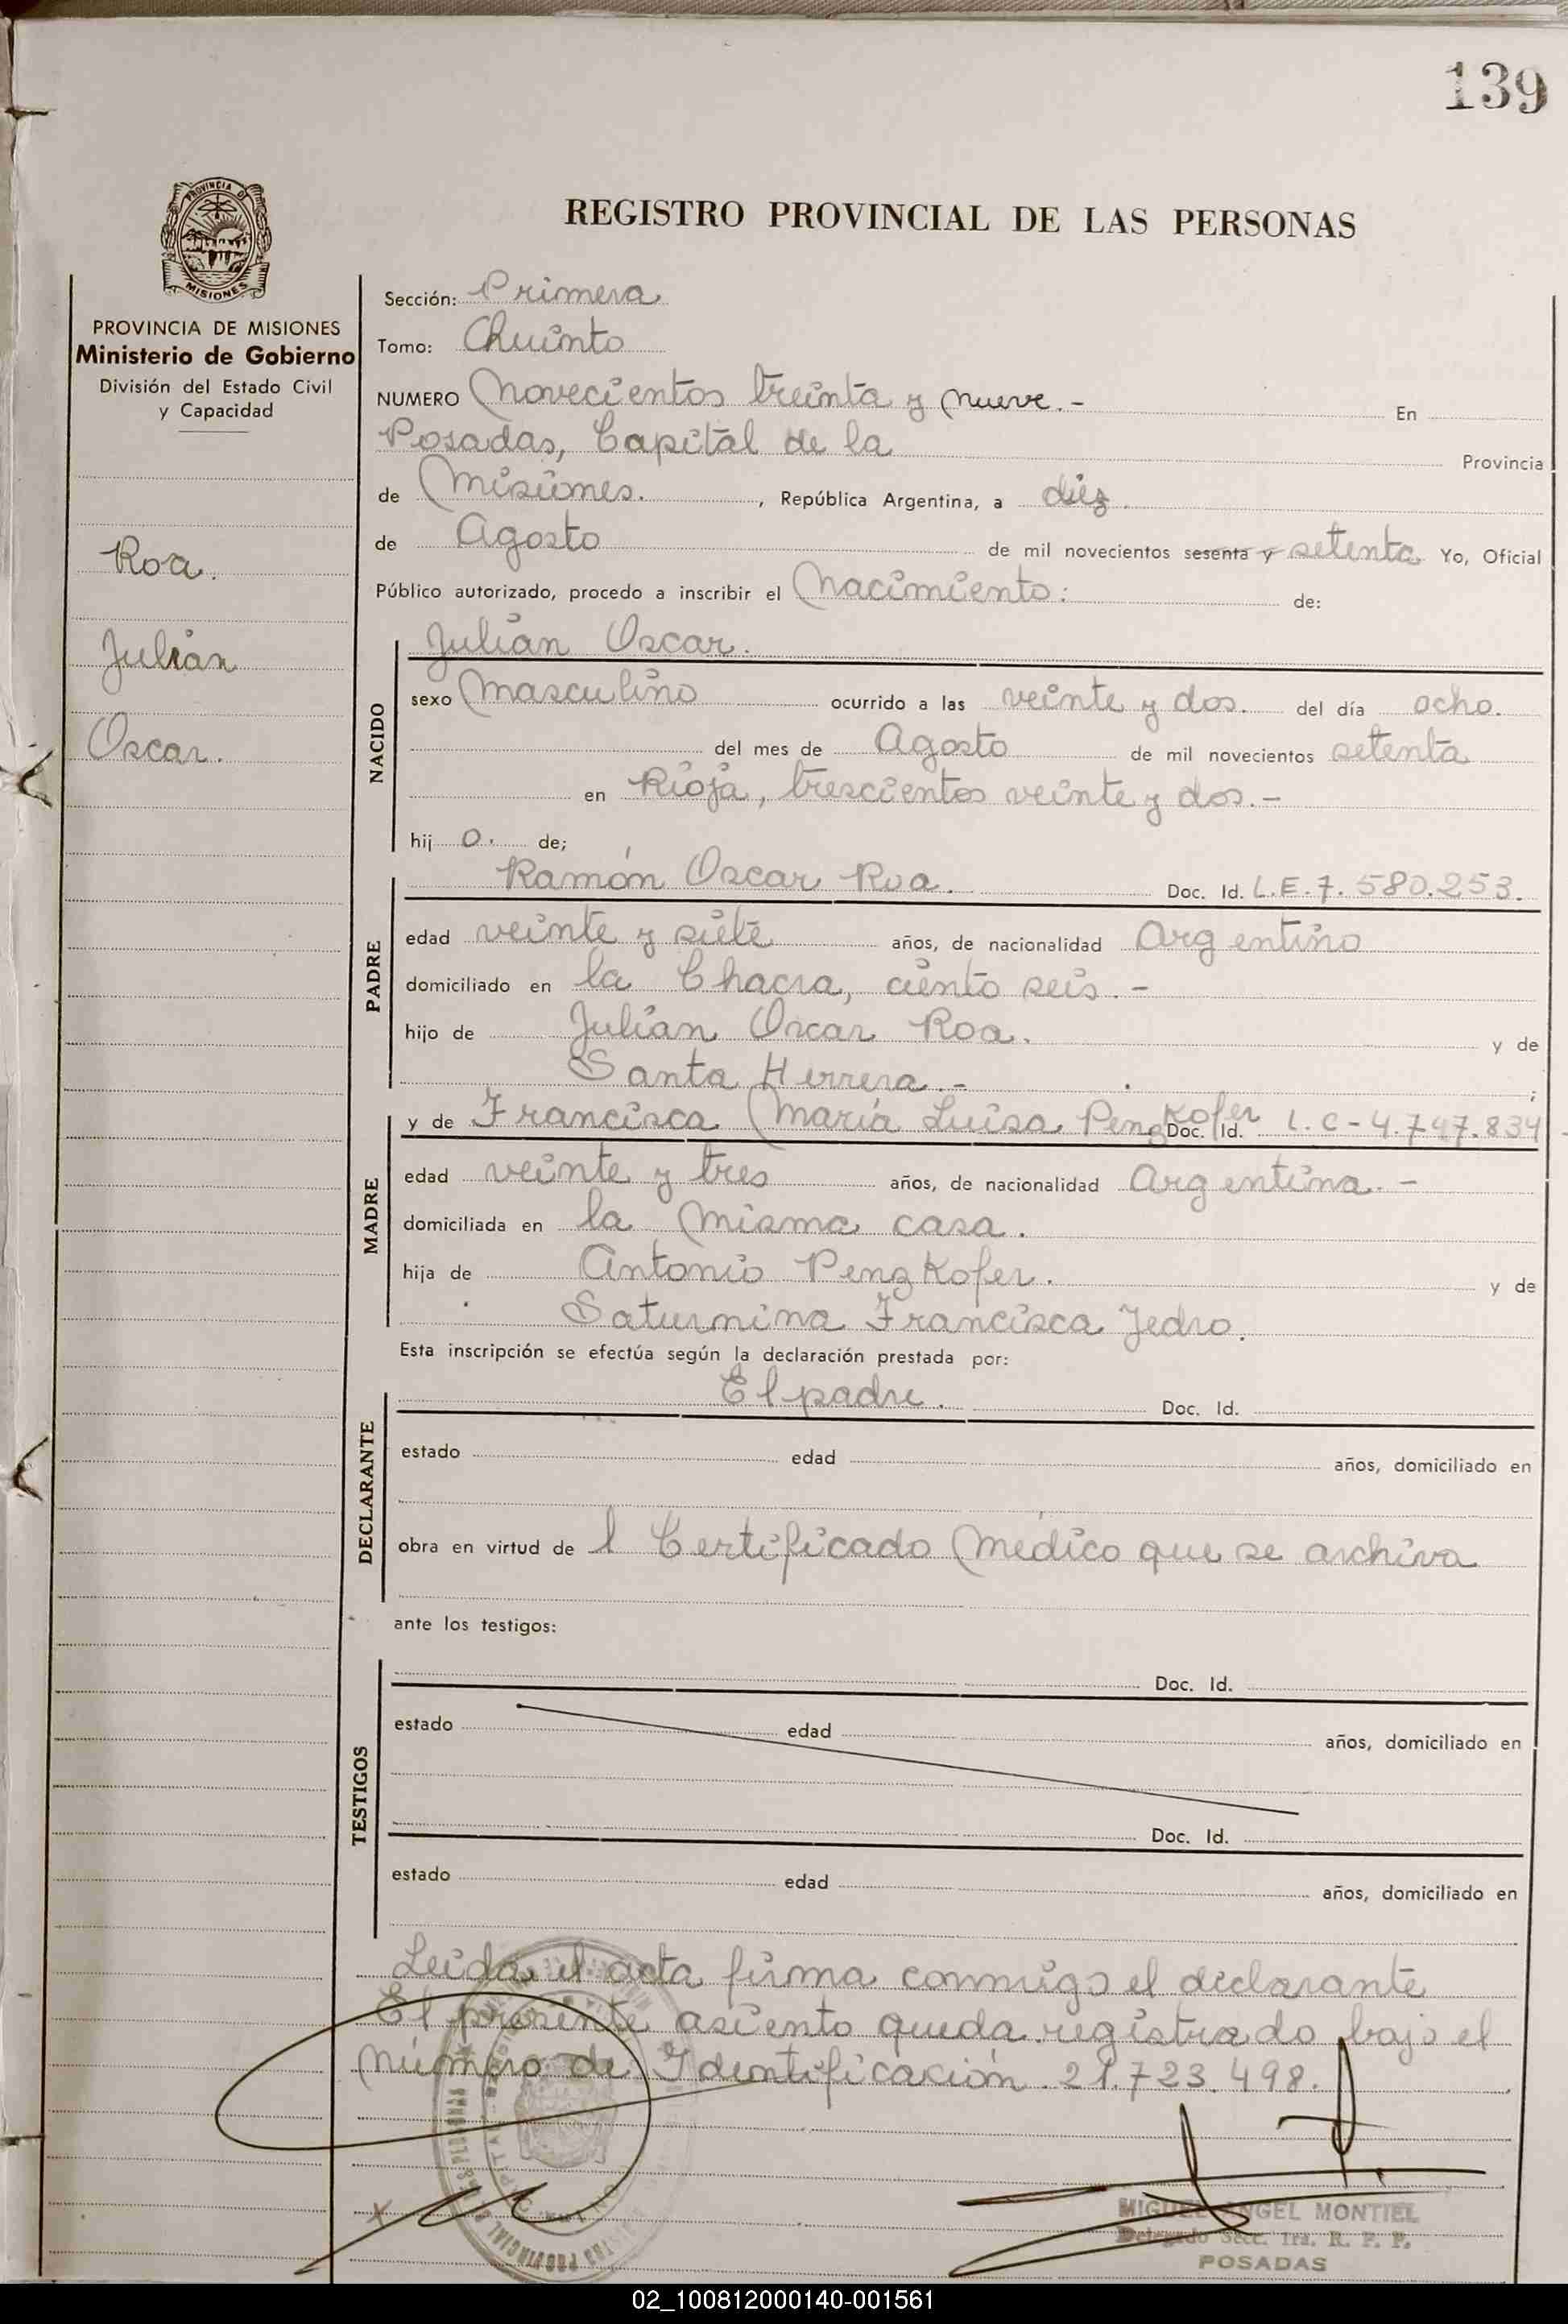 139
PROVINCIA DE
MISIONES
REGISTRO PROVINCIAL DE LAS PERSONAS
PROVINCIA DE MISIONES
Ministerio de Gobierno
División del Estado Civil
y Capacidad
Roa.
Julián
Oscar.
Sección: Primera
Tomo: Chuinto
NUMERO Novecientos treinta y nueve.- En
Posadas, Capital de la Provincia
de Misiones. , República Argentina, a diez
de Agosto de mil novecientos sesenta y setenta Yo, Oficial
Público autorizado, procedo a inscribir el Nacimiento: de:
NACIDO
Julián Oscar.
sexo Masculino ocurrido a las veinte y dos. del día ocho.
del mes de Agosto de mil novecientos setenta
en Rioja, trescientos veinte y dos.-
hij o. de;
PADRE
Ramón Oscar Roa. Doc. Id. L.E.7.580.253.
edad veinte y siete años, de nacionalidad Argentino
domiciliado en la Chacra, ciento seis.-
hijo de Julián Oscar Roa. y de
Santa Herrera.- ;
MADRE
y de Francisca María Luisa Penzkofer Doc. Id. L.C-4.747.834
edad veinte y tres años, de nacionalidad Argentina.-
domiciliada en la misma casa.
hija de Antonio Penzkofer. y de
Saturnina Francisca Jedro.
Esta inscripción se efectúa según la declaración prestada por:
DECLARANTE
El padre. Doc. Id.
estado edad años, domiciliado en
obra en virtud de l Certificado Médico que se archiva
ante los testigos:
TESTIGOS
Doc. Id.
estado edad años, domiciliado en
Doc. Id.
estado edad años, domiciliado en
Leida el acta firma conmigo el declarante
El presente asiento queda registrado bajo el
número de Identificación 21.723.498.
MIGUEL ANGEL MONTIEL
Delegado Secc. 1ra. R. P. P.
POSADAS
02_100812000140-001561